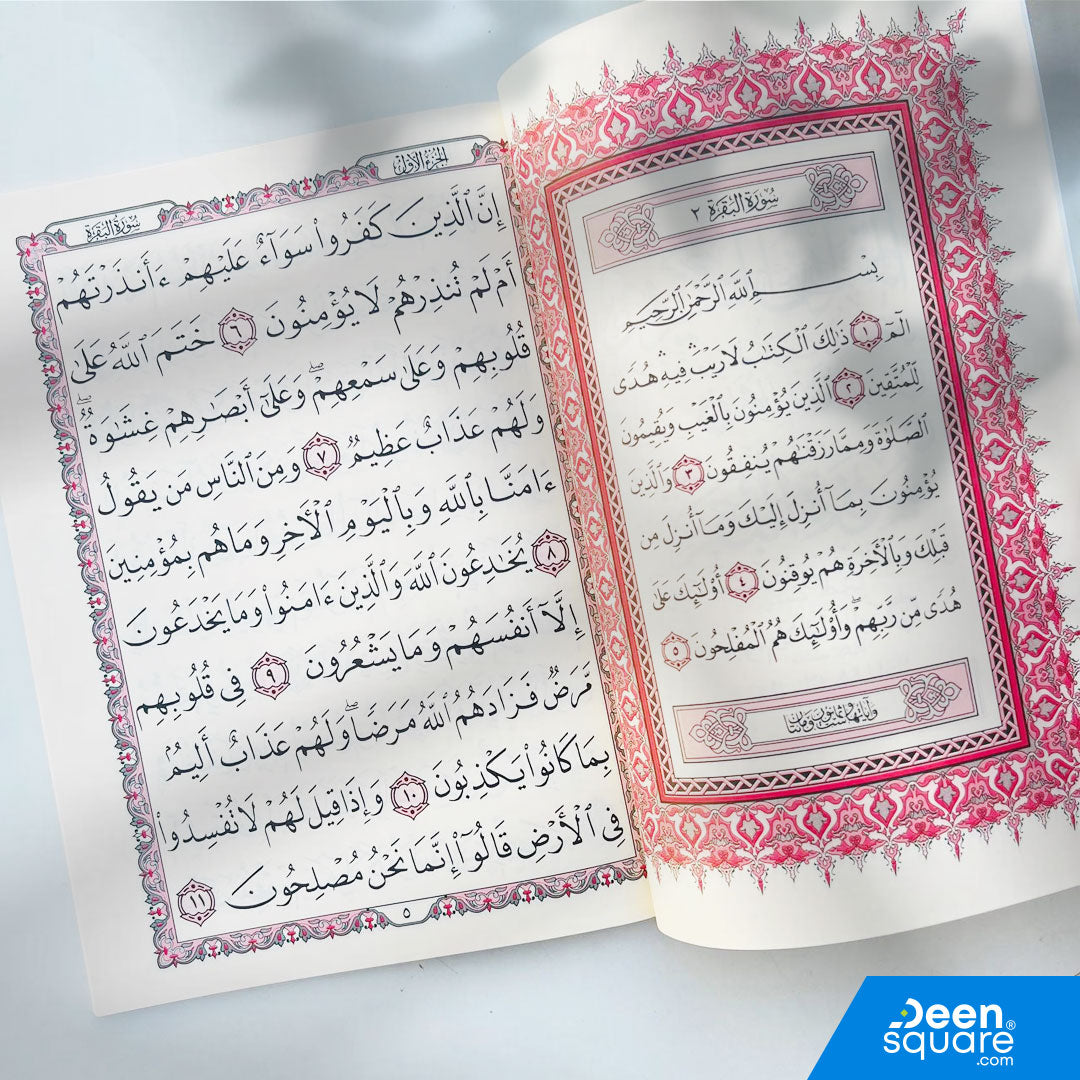 سُورَةُ البَقَرَةِ ٢
بِسْمِ ٱللَّهِ ٱلرَّحْمَٰنِ ٱلرَّحِيمِ
الٓمٓ ١ ذَٰلِكَ ٱلْكِتَٰبُ لَا رَيْبَۛ فِيهِۛ هُدًى
لِّلْمُتَّقِينَ ٢ ٱلَّذِينَ يُؤْمِنُونَ بِٱلْغَيْبِ وَيُقِيمُونَ
ٱلصَّلَوٰةَ وَمِمَّا رَزَقْنَٰهُمْ يُنفِقُونَ ٣ وَٱلَّذِينَ
يُؤْمِنُونَ بِمَآ أُنزِلَ إِلَيْكَ وَمَآ أُنزِلَ مِن
قَبْلِكَ وَبِٱلْأَخِرَةِ هُمْ يُوقِنُونَ ٤ أُو۟لَٰٓئِكَ عَلَىٰ
هُدًى مِّن رَّبِّهِمْۖ وَأُو۟لَٰٓئِكَ هُمُ ٱلْمُفْلِحُونَ ٥
وَآيَاتُهَا سِتٌّ وَثَمَانُونَ وَمِائَتَانِ
الجُزْءُ الأَوَّلُ
سُورَةُ البَقَرَةِ
إِنَّ ٱلَّذِينَ كَفَرُوا۟ سَوَآءٌ عَلَيْهِمْ ءَأَنذَرْتَهُمْ
أَمْ لَمْ تُنذِرْهُمْ لَا يُؤْمِنُونَ ٦ خَتَمَ ٱللَّهُ عَلَىٰ
قُلُوبِهِمْ وَعَلَىٰ سَمْعِهِمْۖ وَعَلَىٰٓ أَبْصَٰرِهِمْ غِشَٰوَةٌۖ
وَلَهُمْ عَذَابٌ عَظِيمٌ ٧ وَمِنَ ٱلنَّاسِ مَن يَقُولُ
ءَامَنَّا بِٱللَّهِ وَبِٱلْيَوْمِ ٱلْأَخِرِ وَمَا هُم بِمُؤْمِنِينَ
٨ يُخَٰدِعُونَ ٱللَّهَ وَٱلَّذِينَ ءَامَنُوا۟ وَمَا يَخْدَعُونَ
إِلَّآ أَنفُسَهُمْ وَمَا يَشْعُرُونَ ٩ فِى قُلُوبِهِم
مَّرَضٌ فَزَادَهُمُ ٱللَّهُ مَرَضًاۖ وَلَهُمْ عَذَابٌ أَلِيمٌۢ
بِمَا كَانُوا۟ يَكْذِبُونَ ١٠ وَإِذَا قِيلَ لَهُمْ لَا تُفْسِدُوا۟
فِى ٱلْأَرْضِ قَالُوٓا۟ إِنَّمَا نَحْنُ مُصْلِحُونَ ١١
٥
Deen®
square
.com